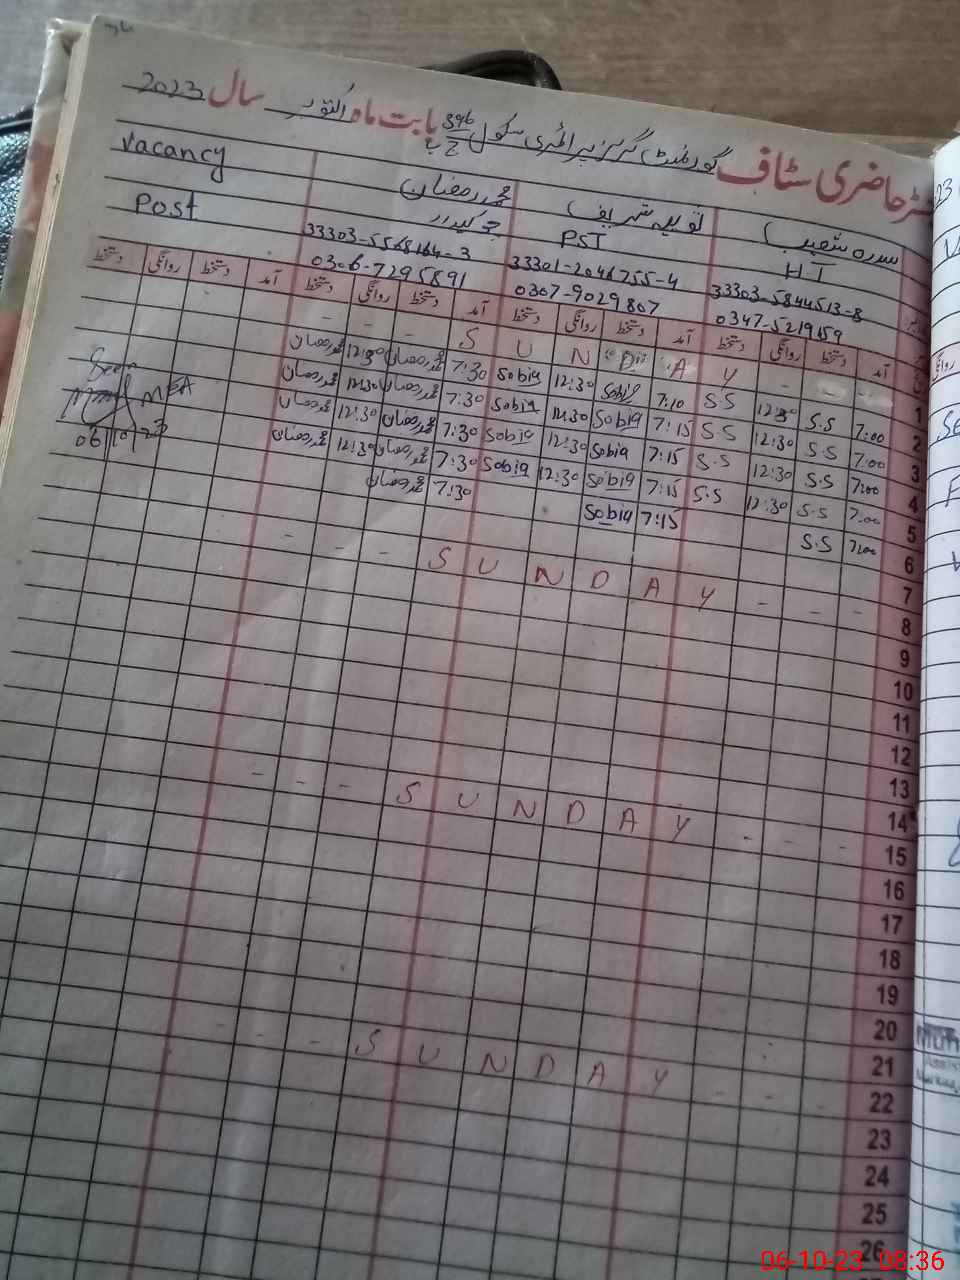 حاضری سٹاف گورنمنٹ گرلز پرائمری سکول 396 ج ب بابت ماہ اکتوبر سال 2023
سدرہ شعیب محمد رمضان Vacancy
H T PST چوکیدار Post
33303-5844513-8 33301-2046755-4 33303-5568164-3
0347-5219159 0307-9029867 0306-7295891
آمد دستخط روانگی دستخط آمد دستخط روانگی دستخط آمد دستخط روانگی دستخط آمد دستخط روانگی دستخط
1 - - - S U N D A Y - - -
2 7:00 S.S 12:30 S.S 7:10 Sobia 12:30 Sobia 7:30 محمد رمضان 12:30 محمد رمضان
3 7:00 S.S 12:30 S.S 7:15 Sobia 12:30 Sobia 7:30 محمد رمضان 12:30 محمد رمضان
4 7:00 S.S 12:30 S.S 7:15 Sobia 12:30 Sobia 7:30 محمد رمضان 12:30 محمد رمضان
5 7:00 S.S 12:30 S.S 7:15 Sobia 12:30 Sobia 7:30 محمد رمضان 12:30 محمد رمضان
6 7:00 S.S 7:15 Sobia 7:30 محمد رمضان
Seen
MEA
06/10/23
7
8 - - - S U N D A Y - - -
9
10
11
12
13
14
15 - - - S U N D A Y - - -
16
17
18
19
20
21
22 - - - S U N D A Y - - -
23
24
25
26
06-10-23 08:36